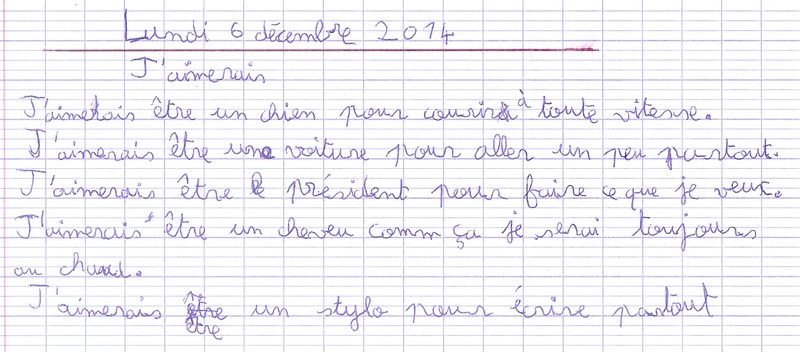 Lundi 6 décembre 2014
J'aimerais
J'aimerais être un chien pour courir à toute vitesse.
J'aimerais être une voiture pour aller un peu partout.
J'aimerais être le président pour faire ce que je veux.
J'aimerais être un cheveu comm ça je serai toujours
au chaud.
J'aimerais être un stylo pour écrire partout
être